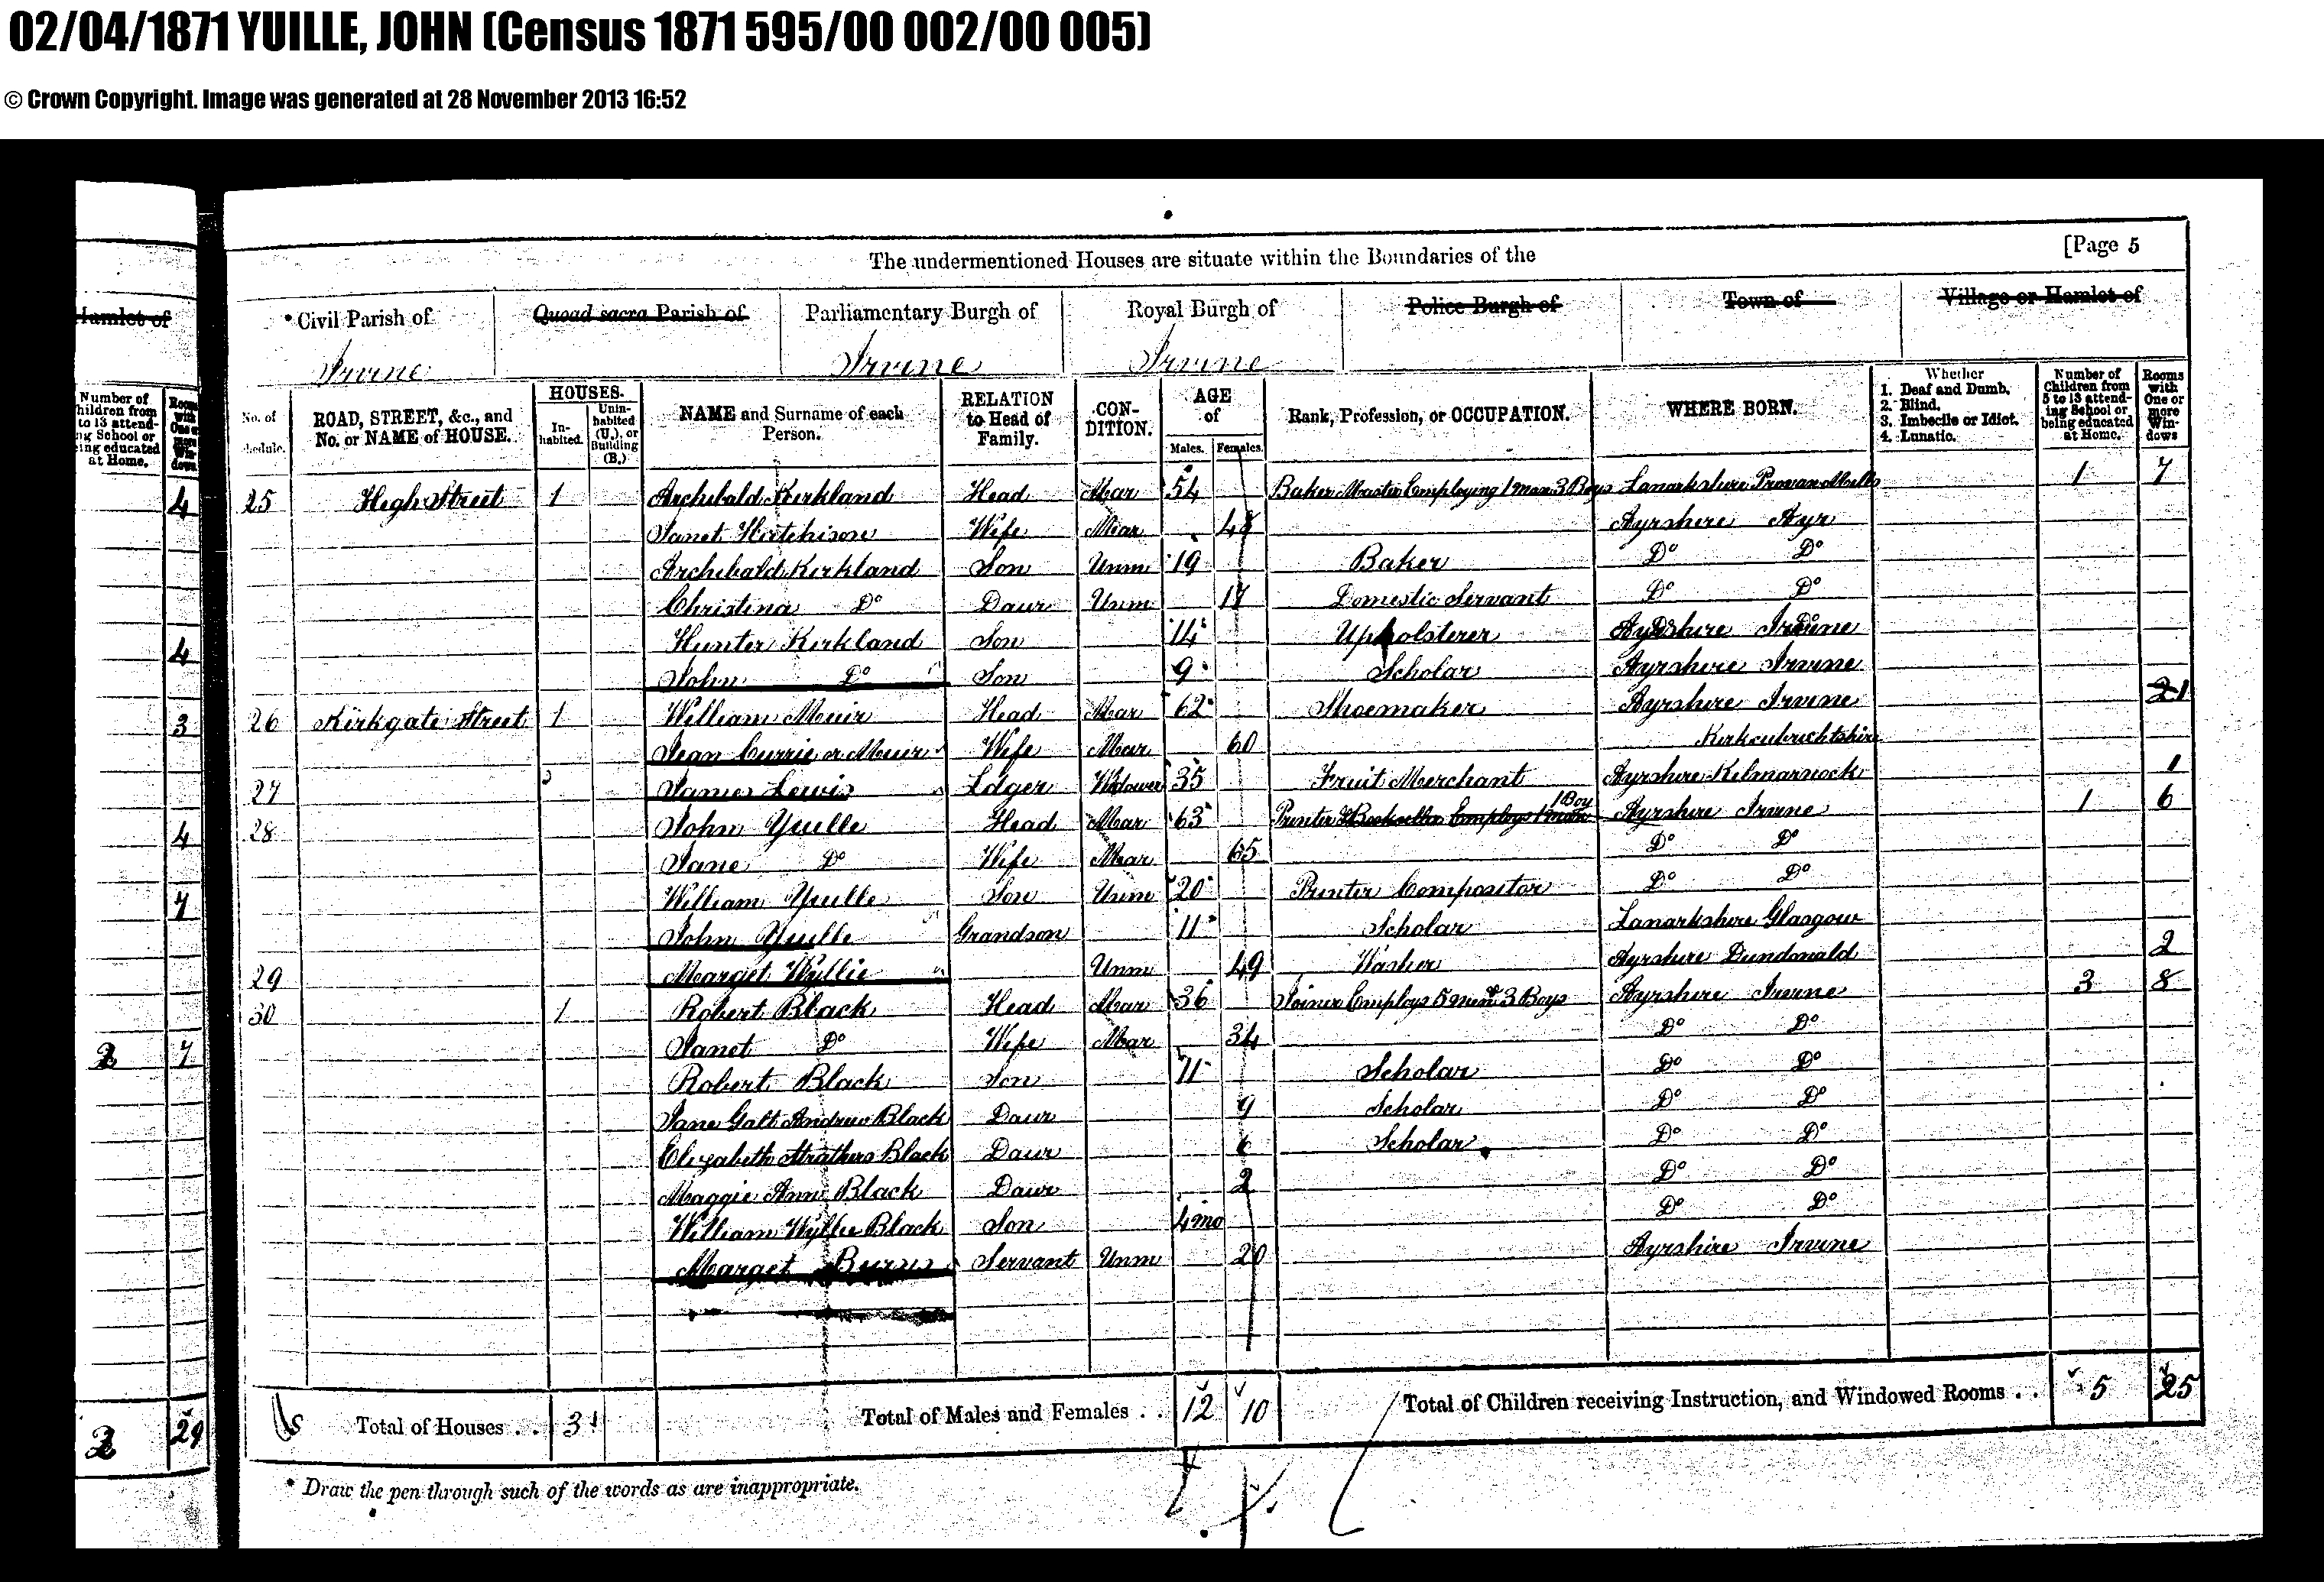 02/04/1871 YUILLE, JOHN (Census 1871 595/00 002/00 005)
© Crown Copyright. Image was generated at 28 November 2013 16:52
[Page 5
The undermentioned Houses are situate within the Boundaries of the
Hamlet of
*Civil Parish of Quoad sacra Parish of Parliamentary Burgh of Royal Burgh of Police Burgh of Town of Village or Hamlet of
Irvine Irvine Irvine
No. of ROAD, STREET, &c., and No. or NAME of HOUSE. HOUSES. In-habited. Unin-habited (U.), or Building (B.) NAME and Surname of each Person. RELATION to Head of Family. CON-DITION. AGE of Males. Females. Rank, Profession, or OCCUPATION. WHERE BORN. Whether 1. Deaf and Dumb. 2. Blind. 3. Imbecile or Idiot. 4. Lunatic. Number of Children from 5 to 13 attend-ing School or being educated at Home. Rooms with One or more Win-dows
4 25 High Street 1 Archibald Kirkland Head Mar 54 Baker Master Employing 1 man 3 Boys Lanarkshire Provan Mills 1 7
Janet Hutchison Wife Mar 48 Ayrshire Ayr
Archibald Kirkland Son Unm 19 Baker Do Do
Christina Do Daur Unm 17 Domestic Servant Do Do
4 Hunter Kirkland Son 14 Upholsterer Ayrshire Irvine
John Do Son 9 Scholar Ayrshire Irvine
3 26 Kirkgate Street 1 William Muir Head Mar 62 Shoemaker Ayrshire Irvine 21
Jean Currie or Muir Wife Mar 60 Kirkcubrichtshire
27 James Lewis Ldger Widower 35 Fruit Merchant Ayrshire Kilmarnock 1
4 28 John Yuille Head Mar 63 Printer & Bookseller Employs 1 man 1 Boy Ayrshire Irvine 1 6
Jane Do Wife Mar 65 Do Do
7 William Yuille Son Unm 20 Printer Compositor Do Do
John Yuille Grandson 11 Scholar Lanarkshire Glasgow
29 Marget Wyllie Unm 49 Washer Ayrshire Dundonald 2
30 1 Robert Black Head Mar 36 Joiner Employs 5 men & 3 Boys Ayrshire Irvine 3 8
2 7 Janet Do Wife Mar 34 Do Do
Robert Black Son 11 Scholar Do Do
Jane Galt Andrew Black Daur 9 Scholar Do Do
Elizabeth Strathers Black Daur 6 Scholar Do Do
Maggie Ann Black Daur 2 Do Do
William Wyllie Black Son 4 mo Do Do
Marget Burns Servant Unm 20 Ayrshire Irvine
2 29 Total of Houses . . 3 Total of Males and Females . . 12 10 Total of Children receiving Instruction, and Windowed Rooms . . 5 25
* Draw the pen through such of the words as are inappropriate.